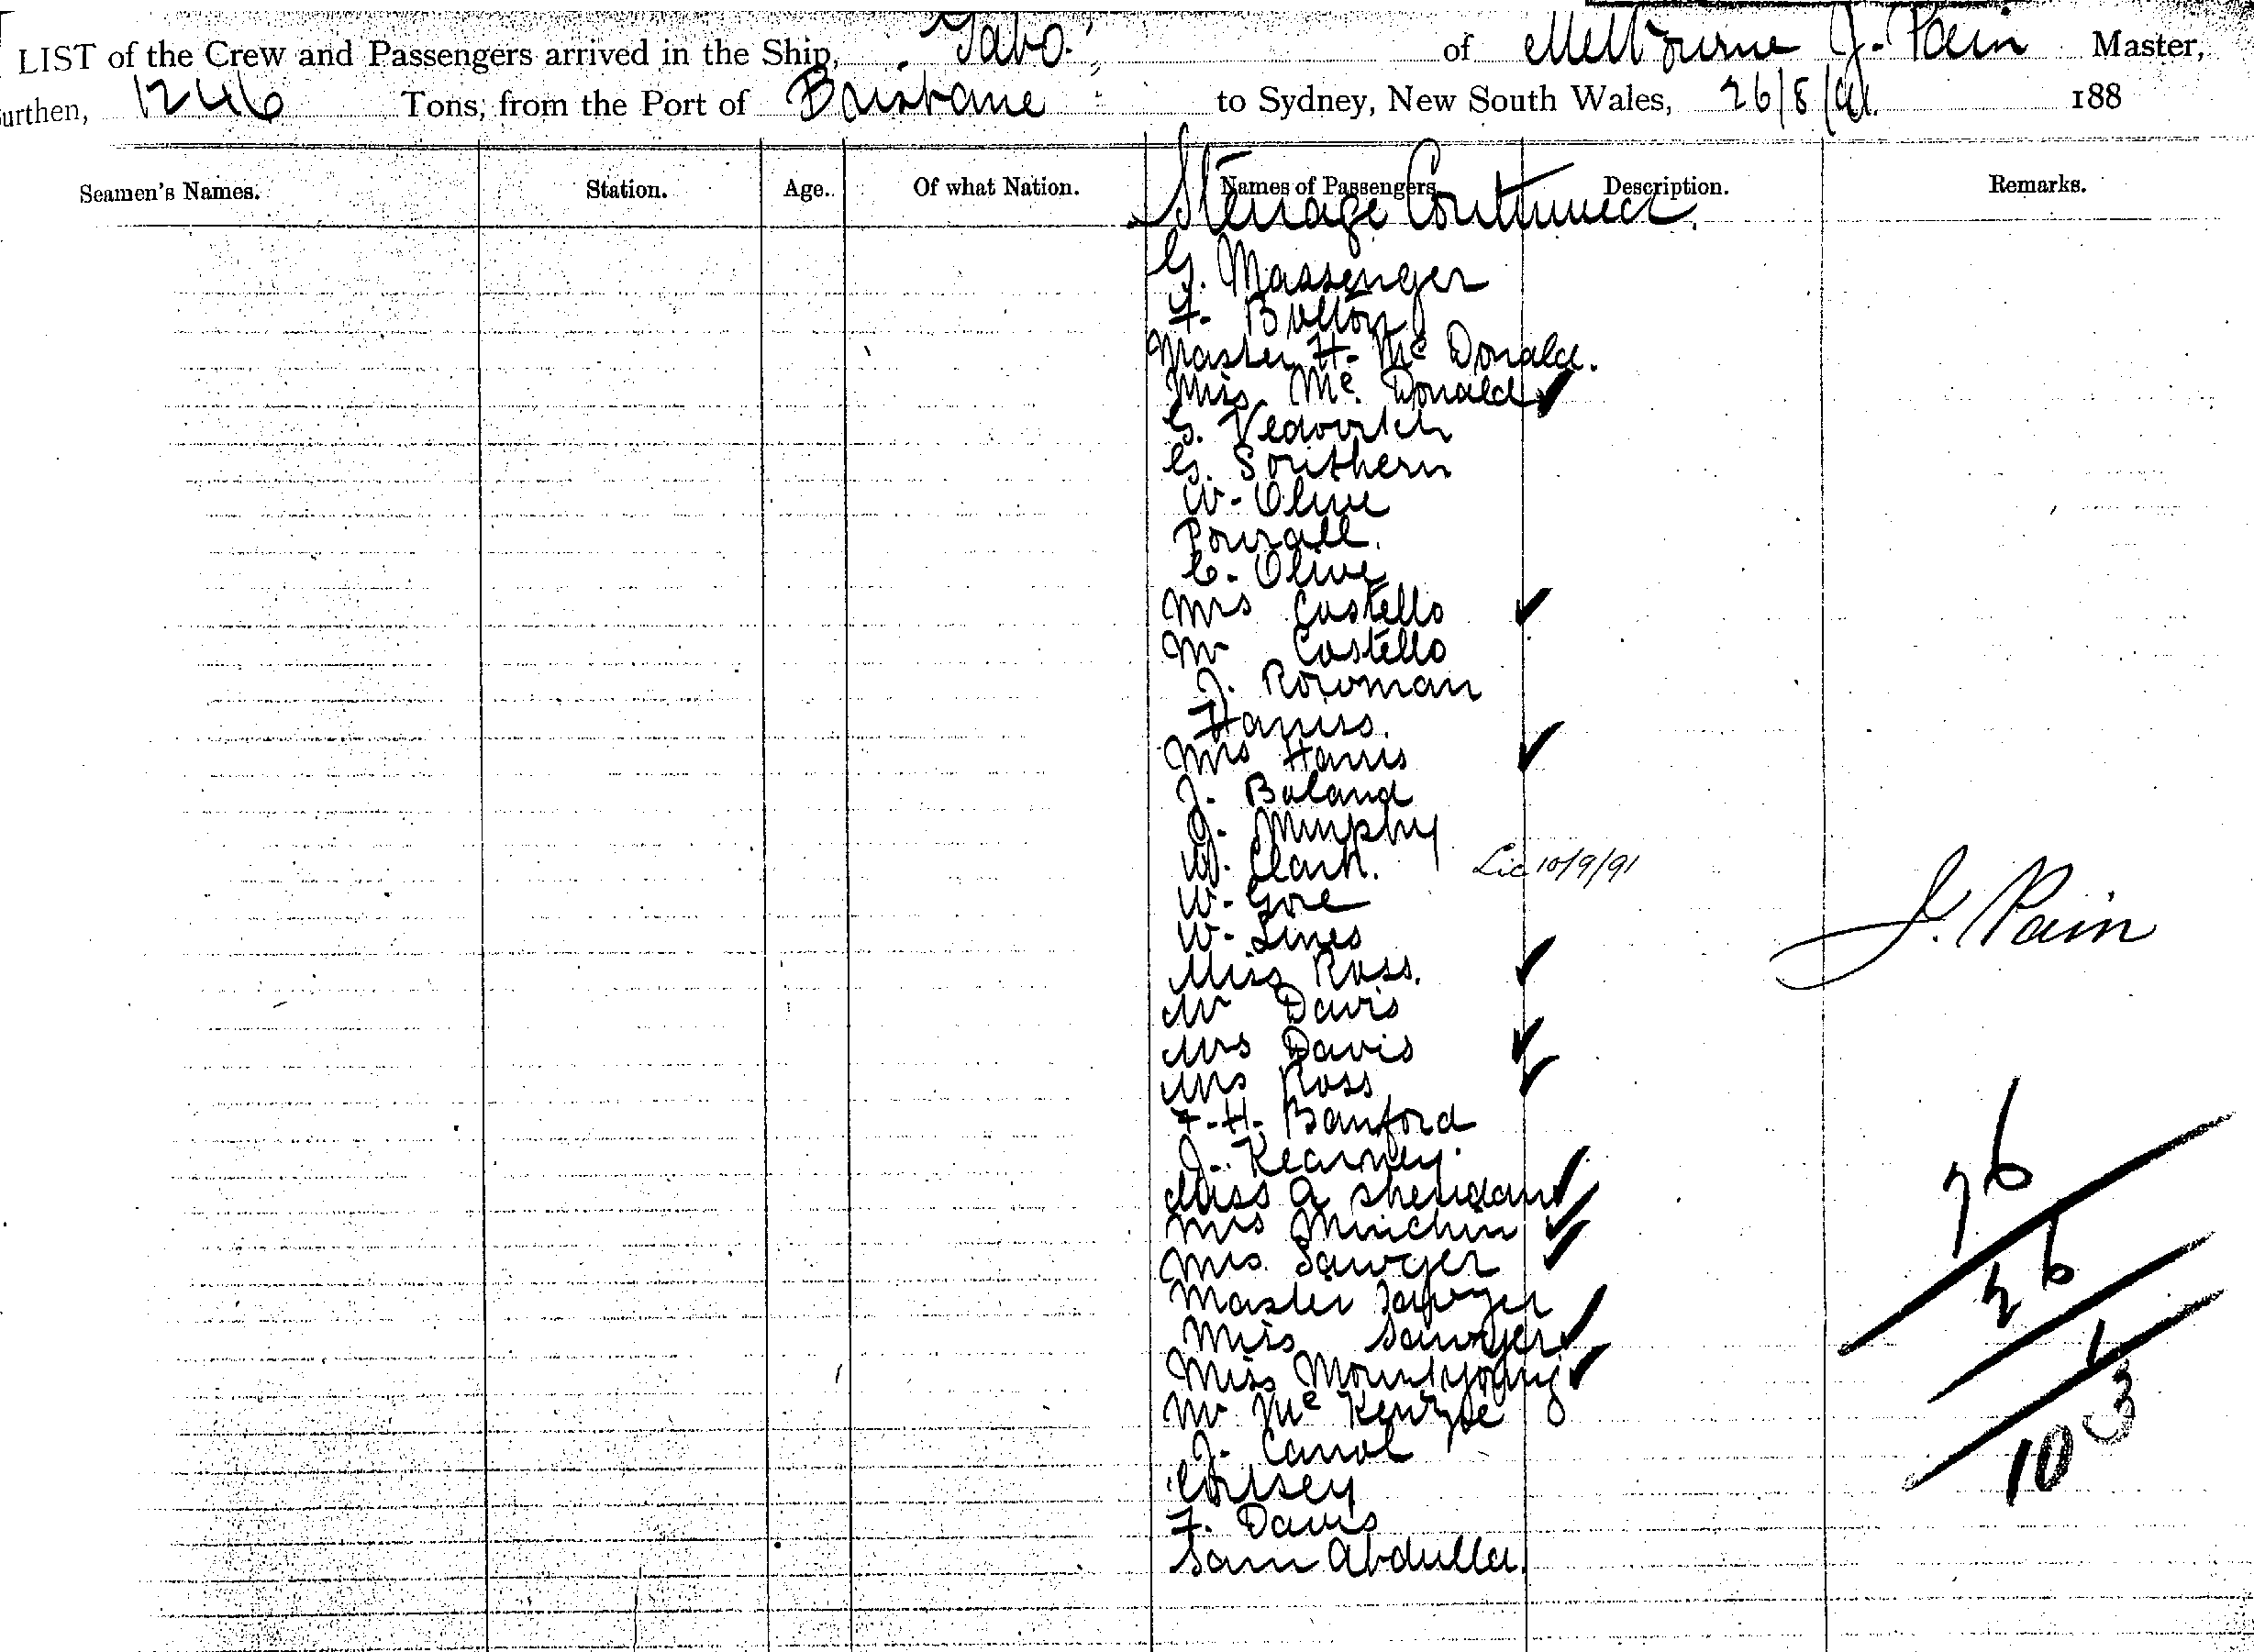 LIST of the Crew and Passengers arrived in the Ship, Gabo. of Melbourne J. Pain Master,
urthen, 1246 Tons, from the Port of Brisbane to Sydney, New South Wales, 26/8/91. 188
Seamen's Names. Station. Age. Of what Nation. Names of Passengers. Description. Remarks.
Steerage Continued.
G. Massenger
F. Bulton
Master H. Mc Donald.
Miss Mc Donald
G. Vedovitch
G. Southern
W. Olive
Pownall.
C. Olive
Mrs Costello
Mr Costello
J. Rowman
Harriss.
Mrs Harris
J. Boland
J. Murphy
W. Clark. Lic 10/9/91
W. Gore
W. Lines
J. Pain
Miss Ross.
Mr Davis
Mrs Davis
Mrs Ross
F. H. Banford
J. Kearney.
Miss A Sheridan
Mrs Minchin
76
Mrs Sawyer
26
Master Sawyer
Miss Sawyer
1
Miss Mountyoung
Mr Mc Kenzie
103
J. Carrol
Coilsey
F. Davis
Sam Abdulla.